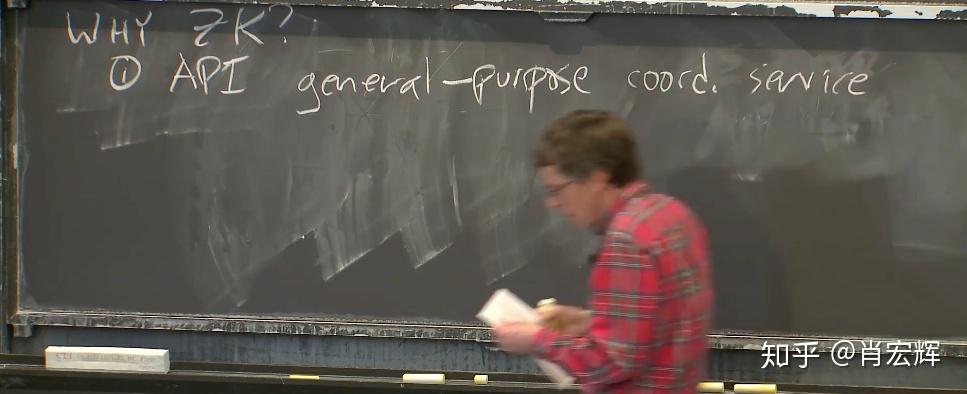 WHY ZK?
① API general-purpose coord. service
知乎 @肖宏辉